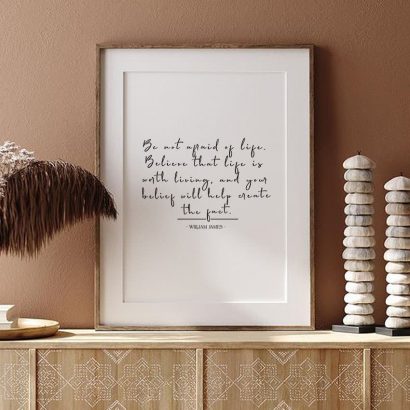 Be not afraid of life.
Believe that life is
worth living, and your
belief will help create
the fact.
- WILLIAM JAMES -